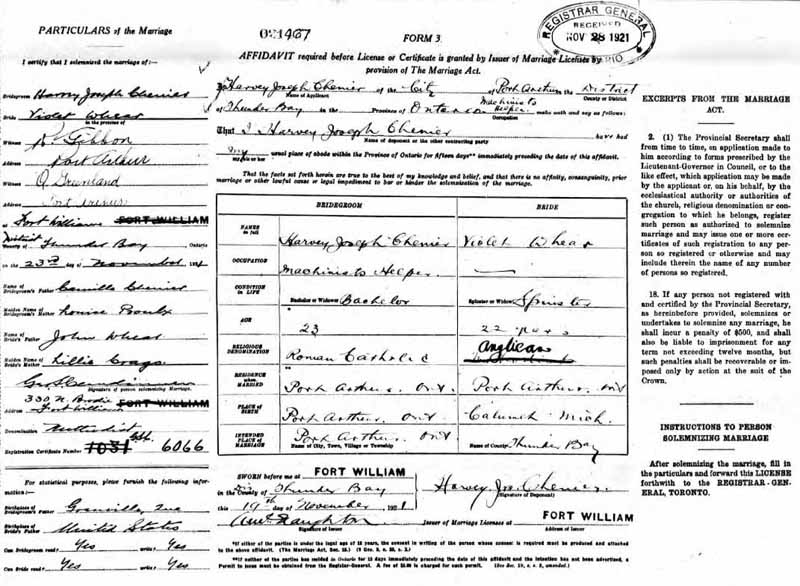 PARTICULARS of the Marriage
I certify that I solemnized the marriage of:—
Bridegroom Harvey Joseph Chenier
Bride Violet Whear
in the presence of
Witness R. Gibbon
Address Port Arthur
Witness
Address Port Arthur
at Fort William FORT WILLIAM
District
County of Thunder Bay Ontario
on the 23rd day of November 1921
Name of Bridegroom's Father Camille Chenier
Maiden Name of Bridegroom's Mother Louise
Name of Bride's Father John Whear
Maiden Name of Bride's Mother Lillie
Signature of person solemnizing Marriage.
Address 330 N. Brodie FORT WILLIAM
Fort William
Denomination Methodist
Registration Certificate Number 1031 6066
For statistical purposes, please furnish the following information:—
Birthplace of Bridegroom's Father
Birthplace of Bride's Father United States
Can Bridegroom read? Yes write? Yes
Can Bride read? Yes write? Yes
021467
FORM 3
REGISTRAR GENERAL
RECEIVED
NOV 28 1921
ONTARIO
AFFIDAVIT required before License or Certificate is granted by Issuer of Marriage Licenses by
provision of The Marriage Act.
I, Harvey Joseph Chenier of the City of Port Arthur in the District
Name of Applicant County or District
of Thunder Bay in the Province of Ontario Machinists Helper make oath and say as follows:
Occupation
That I Harvey Joseph Chenier have had
Name of deponent or the other contracting party
my usual place of abode within the Province of Ontario for fifteen days** immediately preceding the date of this affidavit.
my, his or her
That the facts set forth herein are true to the best of my knowledge and belief, and that there is no affinity, consanguinity, prior
marriage or other lawful cause or legal impediment to bar or hinder the solemnization of the marriage.
BRIDEGROOM BRIDE
NAMES in full Harvey Joseph Chenier Violet Whear
OCCUPATION Machinists Helper —
CONDITION IN LIFE Bachelor or Widower Bachelor Spinster or Widow Spinster
AGE 23 22 years
RELIGIOUS DENOMINATION Roman Catholic Anglican
RESIDENCE WHEN MARRIED Port Arthur, Ont Port Arthur, Ont
PLACE OF BIRTH Port Arthur, Ont Calumet Mich.
INTENDED PLACE OF MARRIAGE Port Arthur, Ont Thunder Bay
Name of City, Town, Village or Township Name of County
SWORN before me at FORT WILLIAM
Dis
in the County of Thunder Bay Harvey Jos Chenier
(Signature of Deponent)
this 19th day of November 1921
Naughton Issuer of Marriage Licenses at FORT WILLIAM
Signature of Issuer Address of Issuer
*If either of the parties is under the age of 18 years, the consent in writing of the person whose consent is required must be produced and attached
to the above affidavit. (The Marriage Act, Sec. 15.)
**If neither of the parties has resided in Ontario for 15 days immediately preceding the date of this affidavit and the intention has not been advertised, a
Permit to issue must be obtained from the Registrar-General. A fee of is charged for such permit.
EXCERPTS FROM THE MARRIAGE
ACT.
2. (1) The Provincial Secretary shall
from time to time, on application made to
him according to forms prescribed by the
Lieutenant-Governor in Council, or to the
like effect, which application may be made
by the applicant or, on his behalf, by the
ecclesiastical authority or authorities of
the church, religious denomination or con-
gregation to which he belongs, register
such person as authorized to solemnize
marriage and may issue one or more cer-
tificates of such registration to any per-
son so registered or otherwise and may
include therein the name of any number
of persons so registered.
18. If any person not registered with
and certified by the Provincial Secretary,
as hereinbefore provided, solemnizes or
undertakes to solemnize any marriage, he
shall incur a penalty of $500, and shall
also be liable to imprisonment for any
term not exceeding twelve months, but
such penalties shall be recoverable or im-
posed only by action at the suit of the
Crown.
INSTRUCTIONS TO PERSON
SOLEMNIZING MARRIAGE
After solemnizing the marriage, fill in
the particulars and forward this LICENSE
forthwith to the REGISTRAR-GEN-
ERAL, TORONTO.